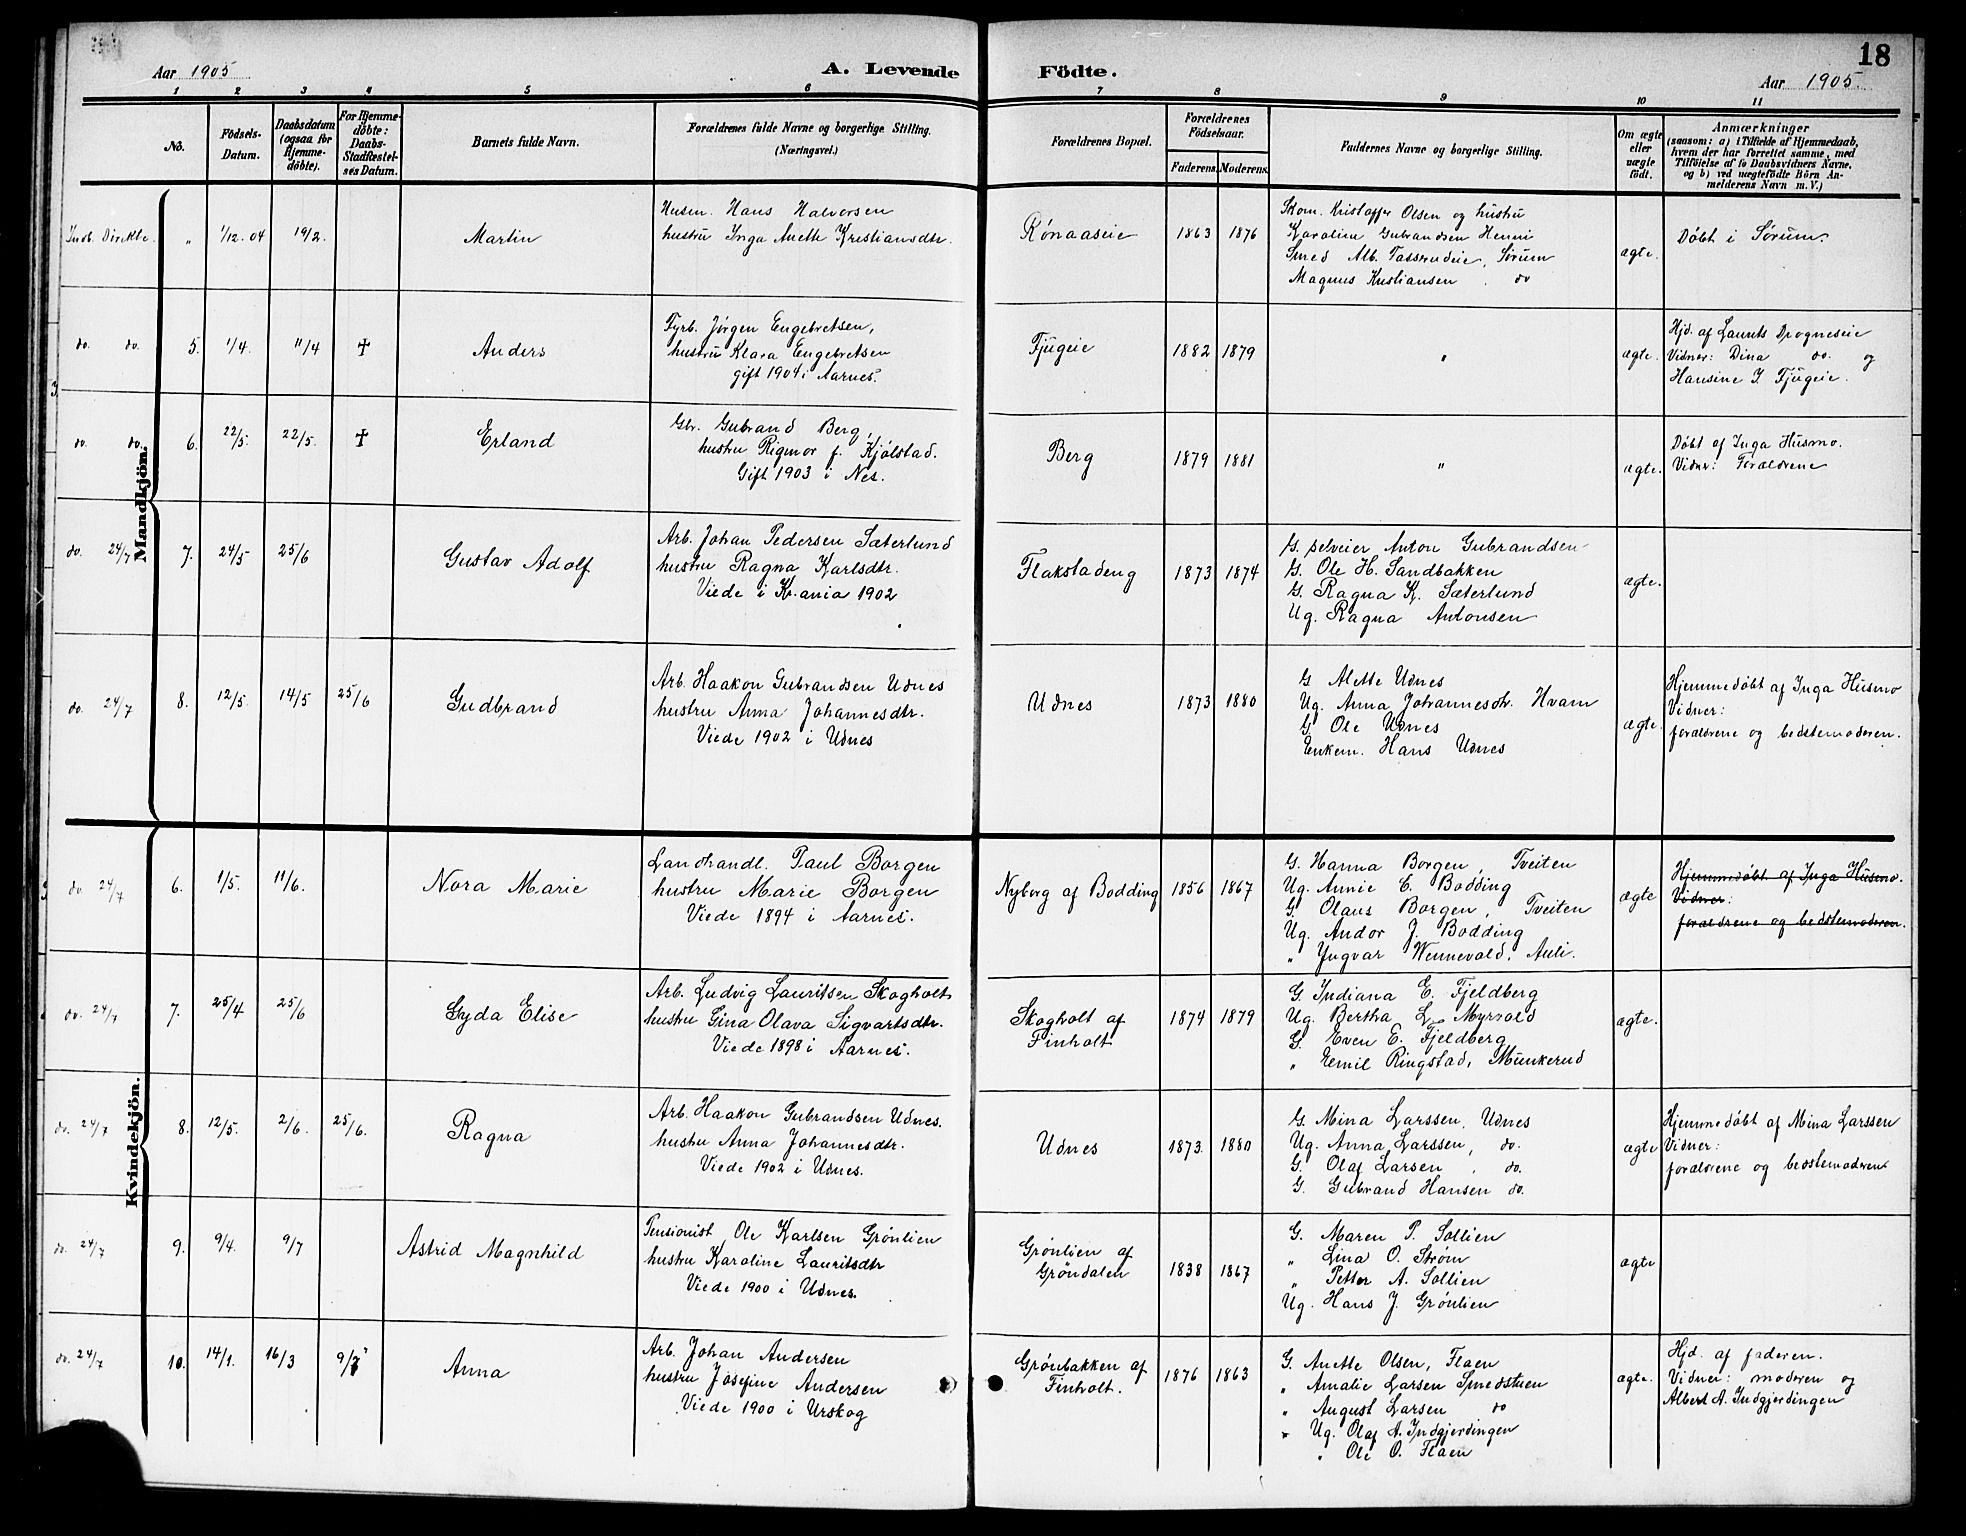 18
Aar 1905
A. Levende Födte.
Aar 1905.
1 2 3 4 5 6 7 8 9 10 11
No.
Födsels-
Datum.
Daabsdatum
(ogsaa for
Hjemme-
döbte).
For Hjemme-
döbte:
Daabs-
Stadfæstel-
ses Datum.
Barnets fulde Navn.
Forældrenes fulde Navne og borgerlige Stilling.
(Næringsvei.)
Forældrenes Bopæl.
Forældrenes
Födselsaar.
Faderens. Moderens.
Faddernes Navne og borgerlige Stilling.
Om ægte
eller
uægte
födt.
Anmærkninger
(saasom: a) i Tilfælde af Hjemmedaab,
hvem der har forrettet samme, med
Tilföielse af to Daabsvidners Navne,
og b) ved uægtefödte Börn An-
melderens Navn m. V.)
Mandkjön.
Indb. Direkte. " 1/12.04 19/2.
Martin
Husm. Hans Halvorsen
hustru Inga Anette Kristiansdtr.
Rønaaseie
1863 1876
Skom. Kristoffer Olsen og hustru
Karoline Gubrandsen Henni
Smed Alb. Tasserudeie, Sørum
Magnus Kristiansen do
ægte.
Døbt i Sørum.
do. do. 5. 1/4. 11/4 †
Anders
Fyrb. Jørgen Engebretsen,
hustru Klara Engebretsen
gift 1904 i Aarnes.
Fjugeie
1882 1879
"
ægte.
Hjd. af Laurits Drogneseie
Vidner: Dina do. og
Hansine J. Fjugeie.
do. do. 6. 22/5. 22/5. †
Erland
Gbr. Gubrand Berg,
hustru Rigmor f. Kjølstad.
Gift 1903 i Nes.
Berg
1879 1881
"
ægte.
Døbt af Inga Husmo.
Vidner: Forældrene
do. 24/7 7. 24/5 25/6
Gustav Adolf
Arb. Johan Pedersen Sæterlund
hustru Ragna Karlsdtr.
Viede i Kr.ania 1902
Flakstadeng
1873 1874
G. selveier Anton Gubrandsen
G. Ole H. Sandbakken
G. Ragna K. Sæterlund
Ug. Ragna Antonsen
ægte.
do. 24/7 8. 12/5. 14/5 25/6
Gudbrand
Arb. Haakon Gubrandsen Udnes
hustru Anna Johannesdtr.
Viede 1902 i Udnes
Udnes
1873 1880
G Alette Udnes
Ug. Anna Johannesdtr. Hvam
G. Ole Udnes
Enkem. Hans Udnes
ægte.
Hjemmedøbt af Inga Husmo
Vidner:
forældrene og bedstemoderen.
Kvindekjön.
do. 24/7 6. 1/5. 11/6.
Nora Marie
Landhandl. Paul Borgen
hustru Marie Borgen
Viede 1894 i Aarnes.
Nyborg af Bodding
1856 1867
G. Hanna Borgen, Tveiten
Ug. Annie E. Bodding
G. Olaus Borgen, Tveiten
Ug. Andor J. Bodding
" Yngvar Wennevold, Auli.
ægte
Hjemmedøbt af Inga Husmo.
Vidner:
forældrene og bedstemoderen.
do. 24/7 7. 25/4 25/6
Gyda Elise
Arb. Ludvig Lauritsen Skogholt
hustru Gina Olava Sigvartsdtr.
Viede 1898 i Aarnes.
Skogholt af
Finholt
1874 1879
G. Indiana E. Fjeldberg
Ug. Bertha L. Myrvold
G. Even E. Fjeldberg
" Emil Ringstad, Munkerud
ægte.
do. 24/7 8. 12/5. 2/6. 25/6.
Ragna
Arb. Haakon Gubrandsen Udnes.
hustru Anna Johannesdtr.
Viede 1902 i Udnes.
Udnes
1873. 1880
G. Mina Larssen, Udnes
Ug. Anna Larssen, do.
G. Olaf Larsen, do.
G. Gubrand Hansen do.
ægte
Hjemmedøbt af Mina Larssen
Vidner:
forældrene og bedstemoderen
do. 24/7 9. 9/4. 9/7
Astrid Magnhild
Pensionist Ole Karlsen Grønlien
hustru Karoline Lauritsdtr
Viede 1900 i Udnes.
Grønlien af
Grøndalen
1838 1867
G. Maren P. Sollien
" Lina O. Strøm
" Petter A. Sollien
Ug. Hans J. Grønlien
ægte
do. 24/7 10. 14/1. 16/3 9/7
Anna
Arb. Johan Andersen
hustru Josefine Andersen
Viede 1900 i Urskog
Grønbakken af
Finholt.
1876 1863
G. Anette Olsen, Flaen
" Amalie Larsen Smedstuen
" August Larsen do
" Ug. Olaf A. Indgjerdingen
" Ole O. Flaen
ægte.
Hjd. af faderen.
Vidner: moderen og
Albert A. Indgjerdingen